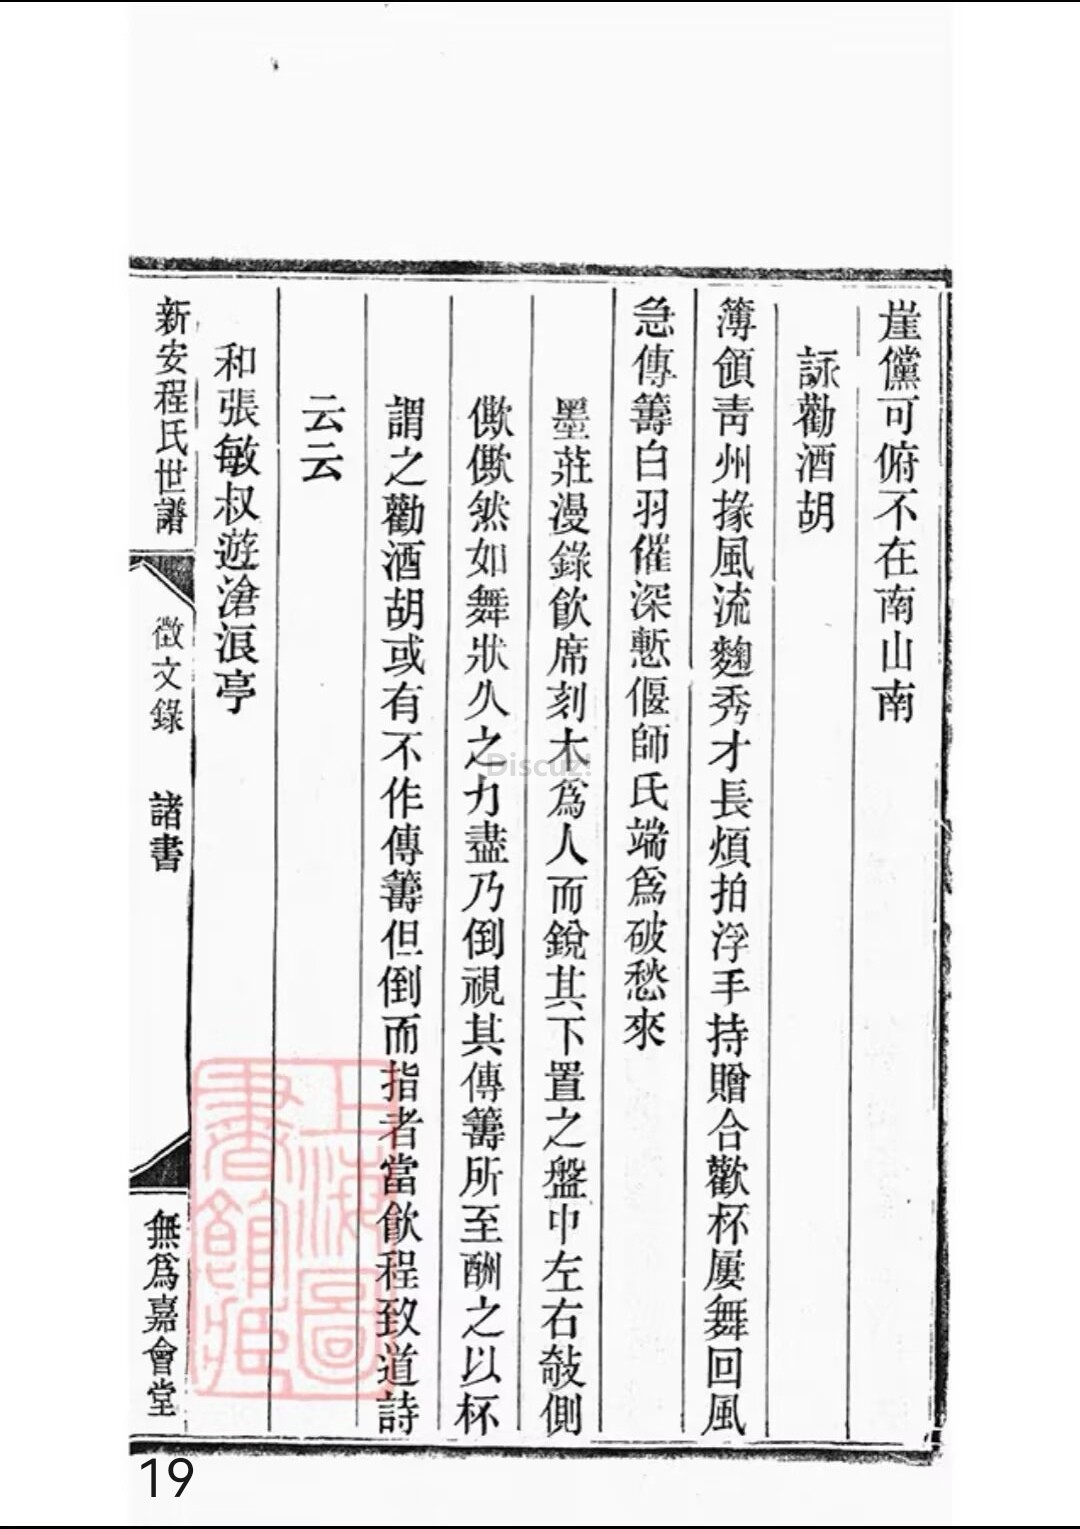 崖儻可俯不在南山南
詠勸酒胡
簿領靑州掾風流麴秀才長煩拍浮手持贈合歡杯屢舞回風
急傳籌白羽催深慙偃師氏端爲破愁來
墨莊漫錄飮席刻木爲人而銳其下置之盤中左右攲側
僛僛然如舞狀久之力盡乃倒視其傳籌所至酬之以杯
謂之勸酒胡或有不作傳籌但倒而指者當飮程致道詩
云云
和張敏叔遊滄浪亭
新安程氏世譜
徵文錄
諸書
無爲嘉會堂
上海圖
書館藏
Discuz!
19